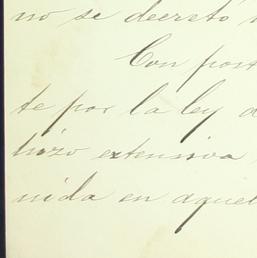 no se decretó
Con post
te por la ley d
hizo extensiva
nida en aquel